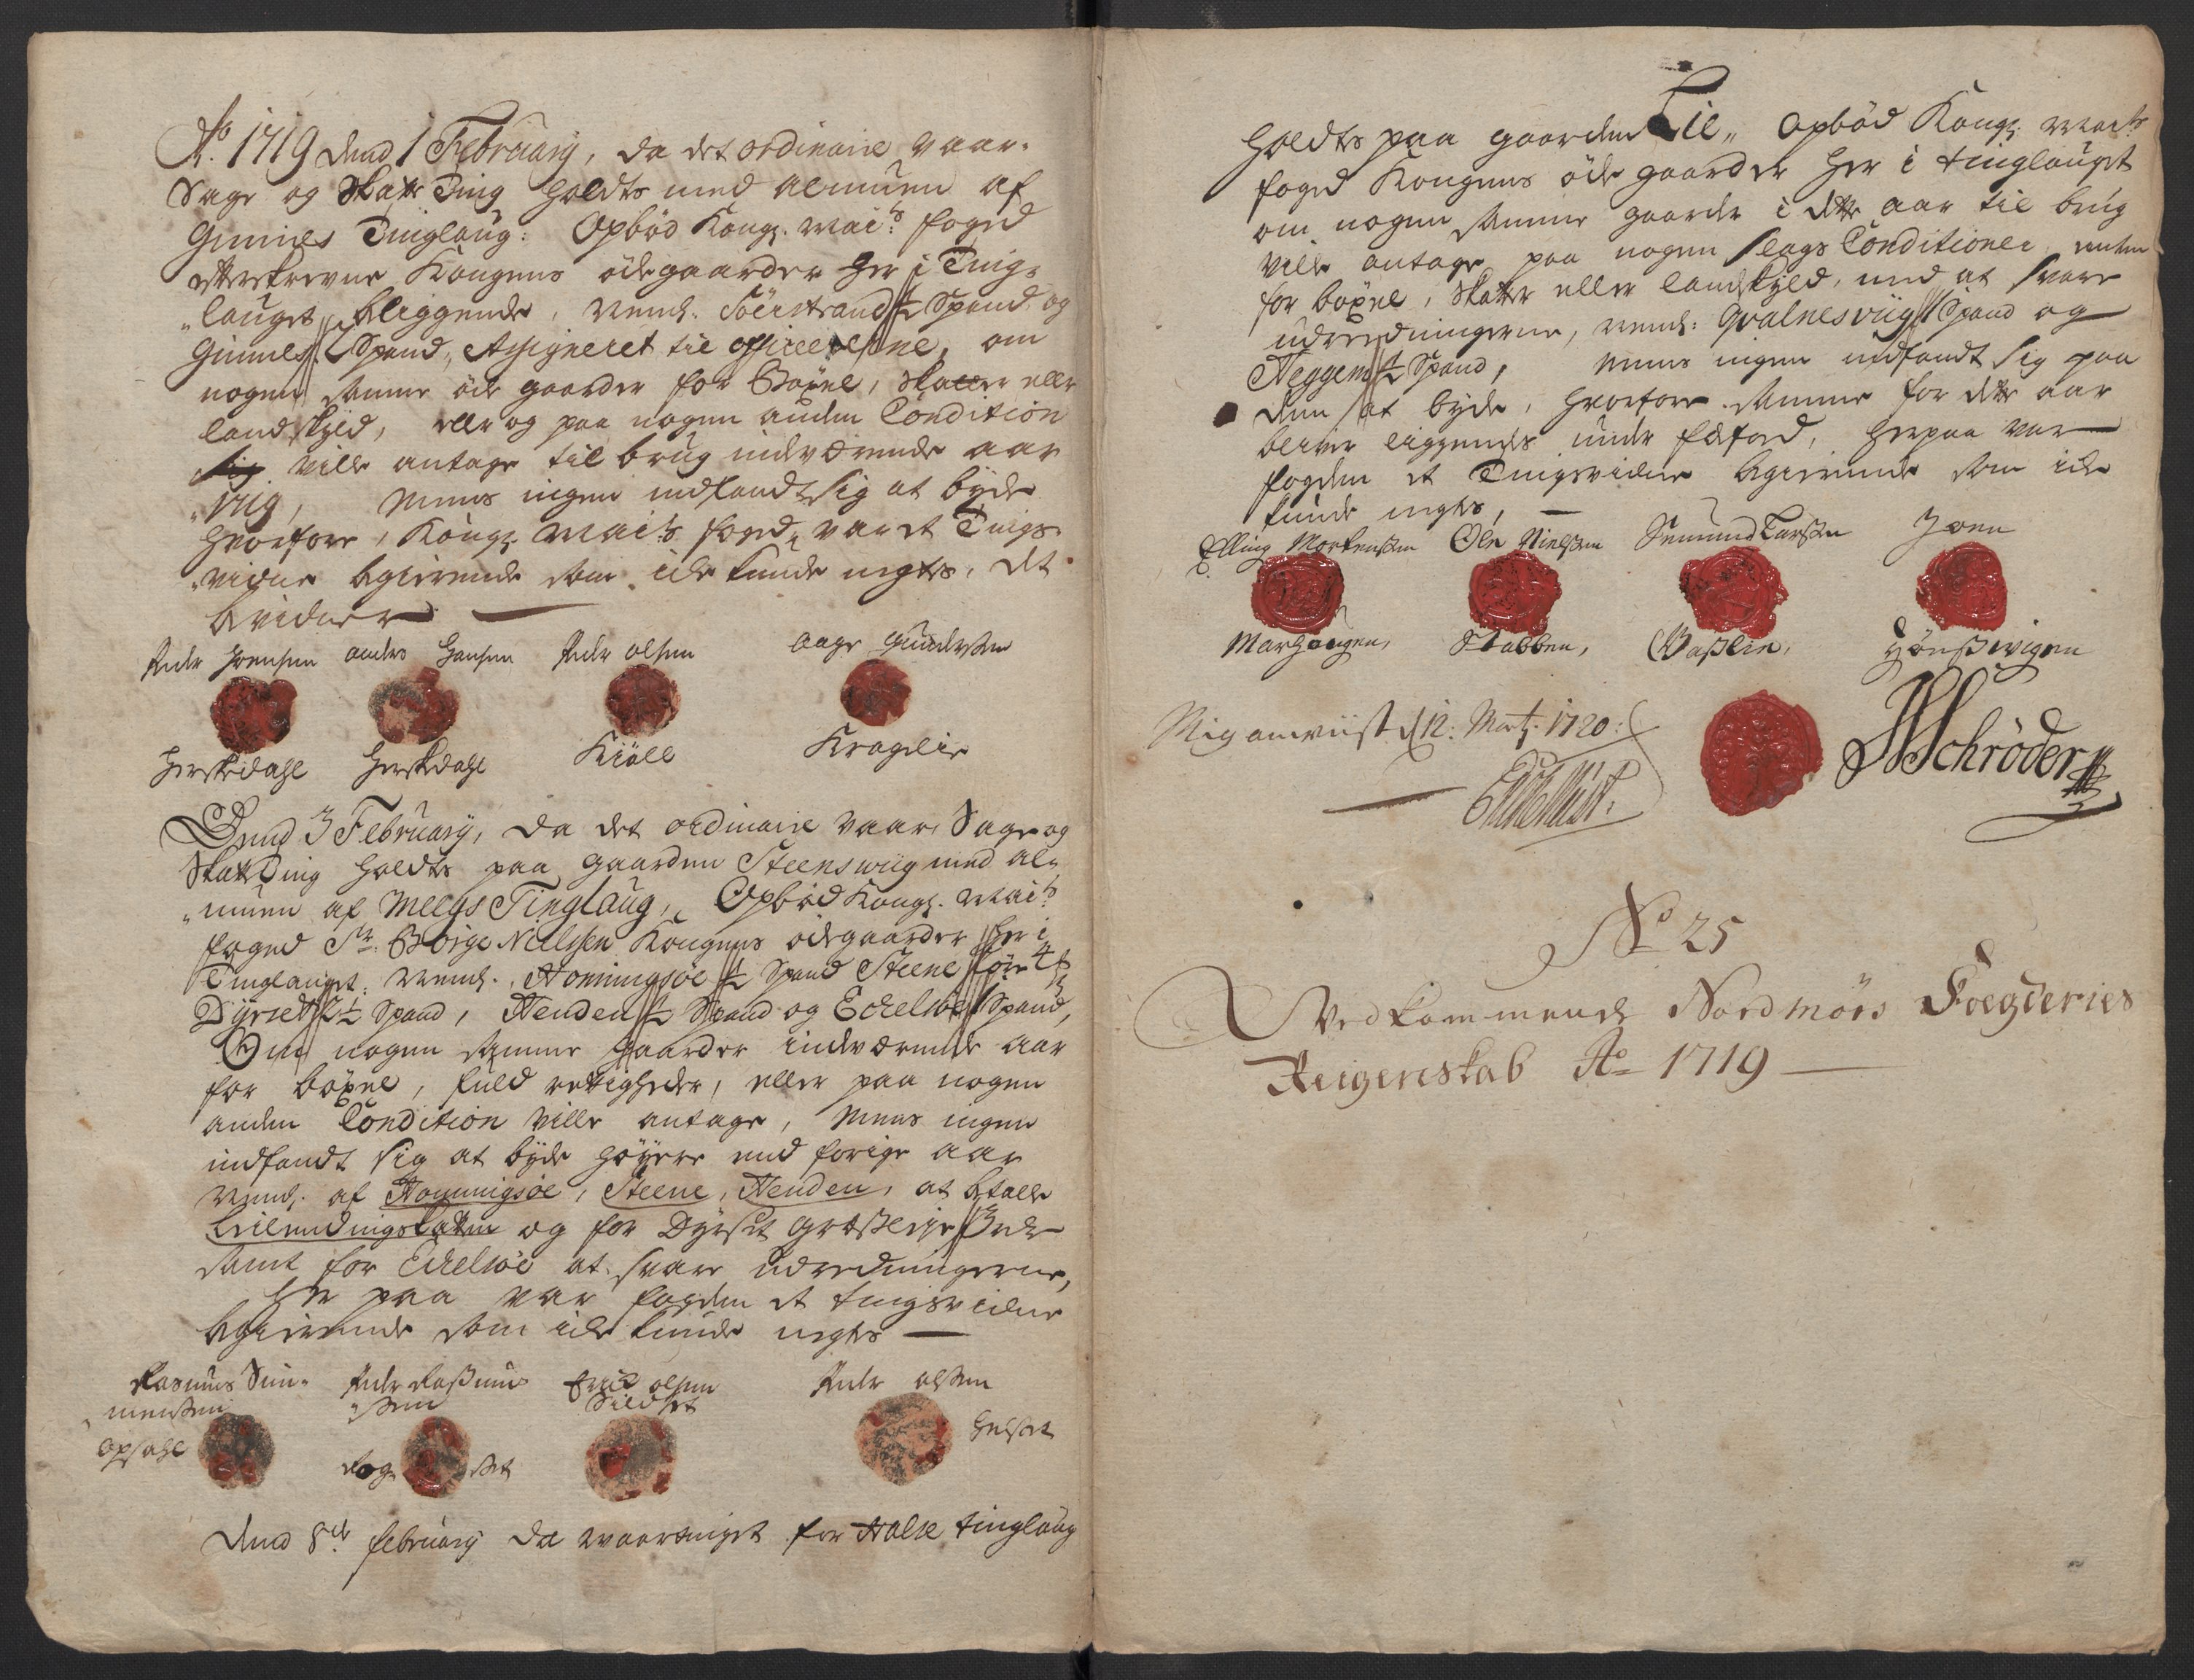 Ao. 1719 dend 1 February, da det ordinaire vaar-
Sage og Skatte Ting holdts med almuen af
Gimnes Tinglaug: Opbød Kongl. Maits: foged
efterskrevne Kongens ødegaarder her i Ting-
lauget beliggende, nemlig: Söerstrand ½ Spand og
Gimnes 1 Spand, Assigneret til officererne, om
nogen samme öde gaarder for Bøxel, skatter eller
landskyld, eller og paa nogen anden Condition
ville antage til brug indværende aar
mens ingen indfandt sig at byde
hvorfore Kongl. Maits foged var et Tings-
vidne begierende som icke kunde negtes, det
bevidner
Peder Joensen anders hansen Peder olsen aage Gundersen
herskedahl herskedahl Kiöll Kragelie
Dend 3 February, da det ordinaire vaar, Sage og
Skatte Ting holdts paa gaarden Steenswiig med al-
muen af Meelgs Tinglaug, Opbød Kongl. Maits
foged Sr. Børge Nielssen Kongens ødegaarder her i
Tinglauget, nemlig: Honningsøe ½ Spand Steene
Dyrset 2½ Spand, Henden ½ Spand og Eckelsøe 1 Spand,
Om nogen samme gaarder indværende aar
for bøxel, fuld rettigheder, eller paa nogen
anden Condition ville antage, mens ingen
indfandt sig at byde höyere end forige aar
nemlig af Honningsøe, Steene, Henden, at betalle
Leilendingskatten og for Dyrset græsleje 3
samt for Eckelsøe at svare udredningerne,
her paa var fogden et tingsvidne
begierende som icke kunde negtes
Rasmus Sim- Peder Rasmus Erick olsen Peder olsen
mensen sen Sildset
opsahl Rog set helset
Dend 8de february da vaartinget for Halse tinglaug
holdts paa gaarden Lie, opbød Kongl. Maits
foged Kongens øde gaarder her i tinglauget
om nogen samme gaarder i dette aar til brug
ville antage paa nogen slags Conditioner enten
for bøxel, skatter eller landskyld, med at svare
udredningerne, nemlig: Qvalnesviig 1 Spand og
Heggem ½ Spand, mens ingen indfandt sig paa
dem at byde, hvorfore samme for dette aar
bliver liggendes under fæfod, herpaa var
fogden et Tingsvidne begierende som icke
kunde negtes,
Elling Mortensen Ole Nielsen Semund Larsen Joen
Marhougen, Stabben, Vaslie, hönsvigen
Mig anviist d. 12: Mart: 1720:
Schröder
No 25
Vedkommende Nordmørs Foegderies
Reigenskab Ao 1719